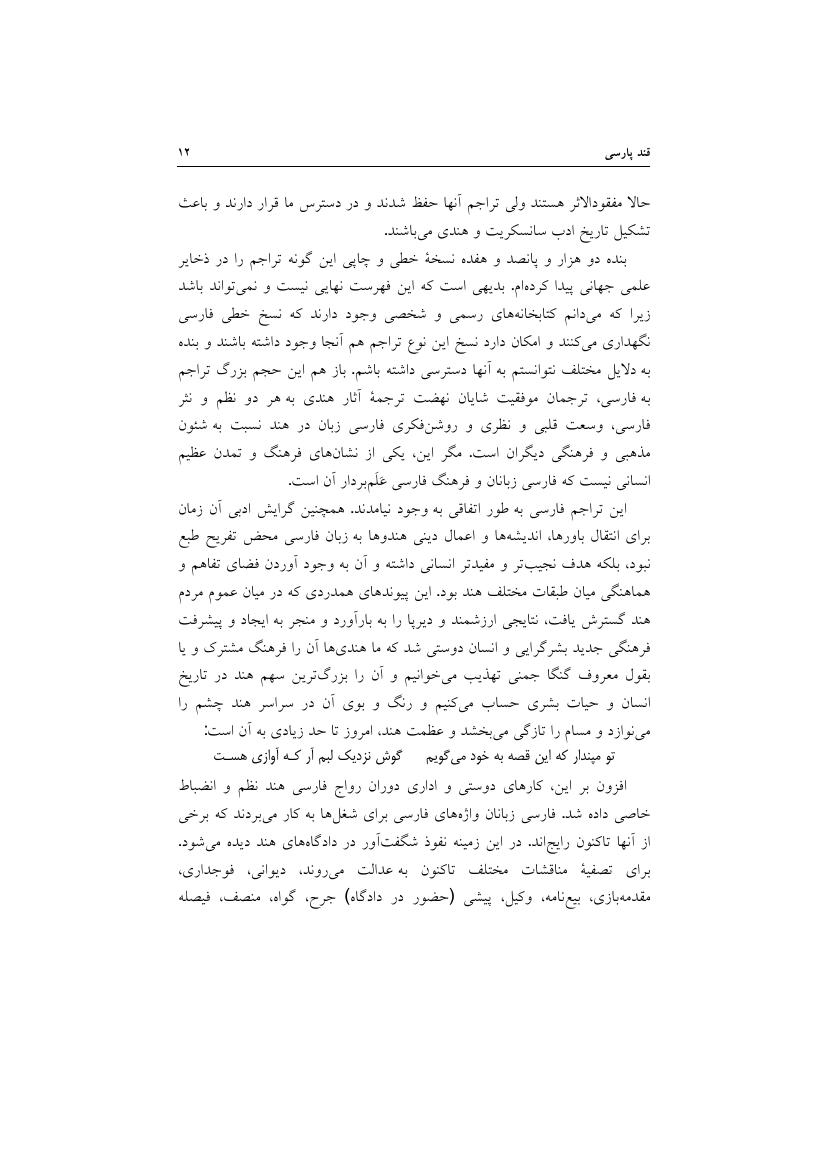 قند پارسی ۱۲
حالا مفقودالاثر هستند ولی تراجم آنها حفظ شدند و در دسترس ما قرار دارند و باعث
تشکیل تاریخ ادب سانسکریت و هندی می‌باشند.
بنده دو هزار و پانصد و هفده نسخهٔ خطی و چاپی این گونه تراجم را در ذخایر
علمی جهانی پیدا کرده‌ام. بدیهی است که این فهرست نهایی نیست و نمی‌تواند باشد
زیرا که می‌دانم کتابخانه‌های رسمی و شخصی وجود دارند که نسخ خطی فارسی
نگهداری می‌کنند و امکان دارد نسخ این نوع تراجم هم آنجا وجود داشته باشند و بنده
به دلایل مختلف نتوانستم به آنها دسترسی داشته باشم. باز هم این حجم بزرگ تراجم
به فارسی، ترجمان موفقیت شایان نهضت ترجمهٔ آثار هندی به هر دو نظم و نثر
فارسی، وسعت قلبی و نظری و روشن‌فکری فارسی زبان در هند نسبت به شئون
مذهبی و فرهنگی دیگران است. مگر این، یکی از نشان‌های فرهنگ و تمدن عظیم
انسانی نیست که فارسی زبانان و فرهنگ فارسی عَلَم‌بردار آن است.
این تراجم فارسی به طور اتفاقی به وجود نیامدند. همچنین گرایش ادبی آن زمان
برای انتقال باورها، اندیشه‌ها و اعمال دینی هندوها به زبان فارسی محض تفریح طبع
نبود، بلکه هدف نجیب‌تر و مفیدتر انسانی داشته و آن به وجود آوردن فضای تفاهم و
هماهنگی میان طبقات مختلف هند بود. این پیوندهای همدردی که در میان عموم مردم
هند گسترش یافت، نتایجی ارزشمند و دیرپا را به بارآورد و منجر به ایجاد و پیشرفت
فرهنگی جدید بشرگرایی و انسان دوستی شد که ما هندی‌ها آن را فرهنگ مشترک و یا
بقول معروف گنگا جمنی تهذیب می‌خوانیم و آن را بزرگ‌ترین سهم هند در تاریخ
انسان و حیات بشری حساب می‌کنیم و رنگ و بوی آن در سراسر هند چشم را
می‌نوازد و مسام را تازگی می‌بخشد و عظمت هند، امروز تا حد زیادی به آن است:
تو مپندار که این قصه به خود می‌گویم گوش نزدیک لبم آر کـه آوازی هسـت
افزون بر این، کارهای دوستی و اداری دوران رواج فارسی هند نظم و انضباط
خاصی داده شد. فارسی زبانان واژه‌های فارسی برای شغل‌ها به کار می‌بردند که برخی
از آنها تاکنون رایج‌اند. در این زمینه نفوذ شگفت‌آور در دادگاه‌های هند دیده می‌شود.
برای تصفیهٔ مناقشات مختلف تاکنون به عدالت می‌روند، دیوانی، فوجداری،
مقدمه‌بازی، بیع‌نامه، وکیل، پیشی (حضور در دادگاه) جرح، گواه، منصف، فیصله